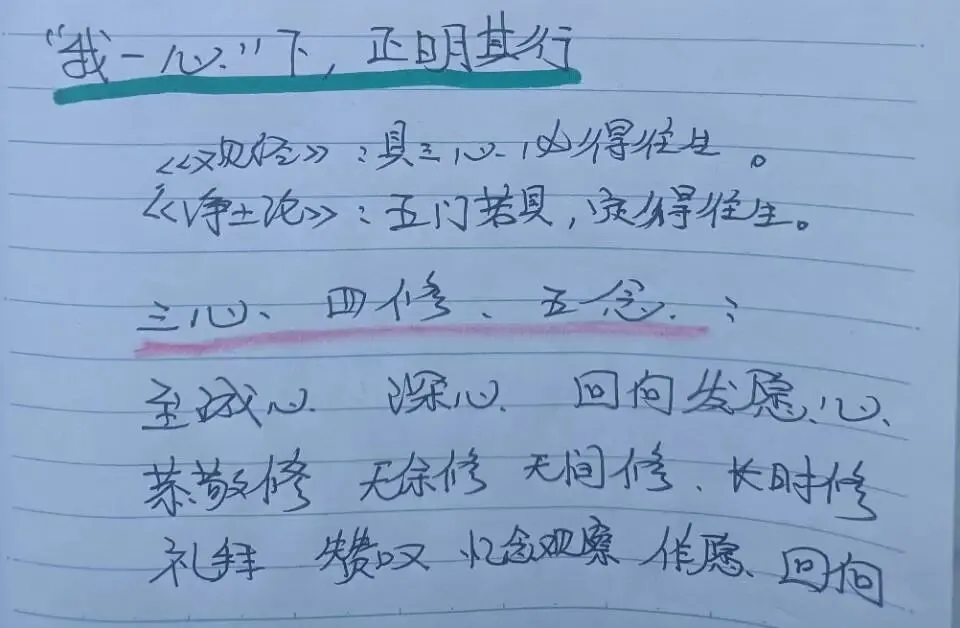 “我一心”下，正明其行
《观经》：具三心必得往生。
《净土论》：五门若具，定得往生。
三心、四修、五念：
至诚心 深心 回向发愿心
恭敬修 无余修 无间修、长时修
礼拜 赞叹 忆念观察 作愿 回向